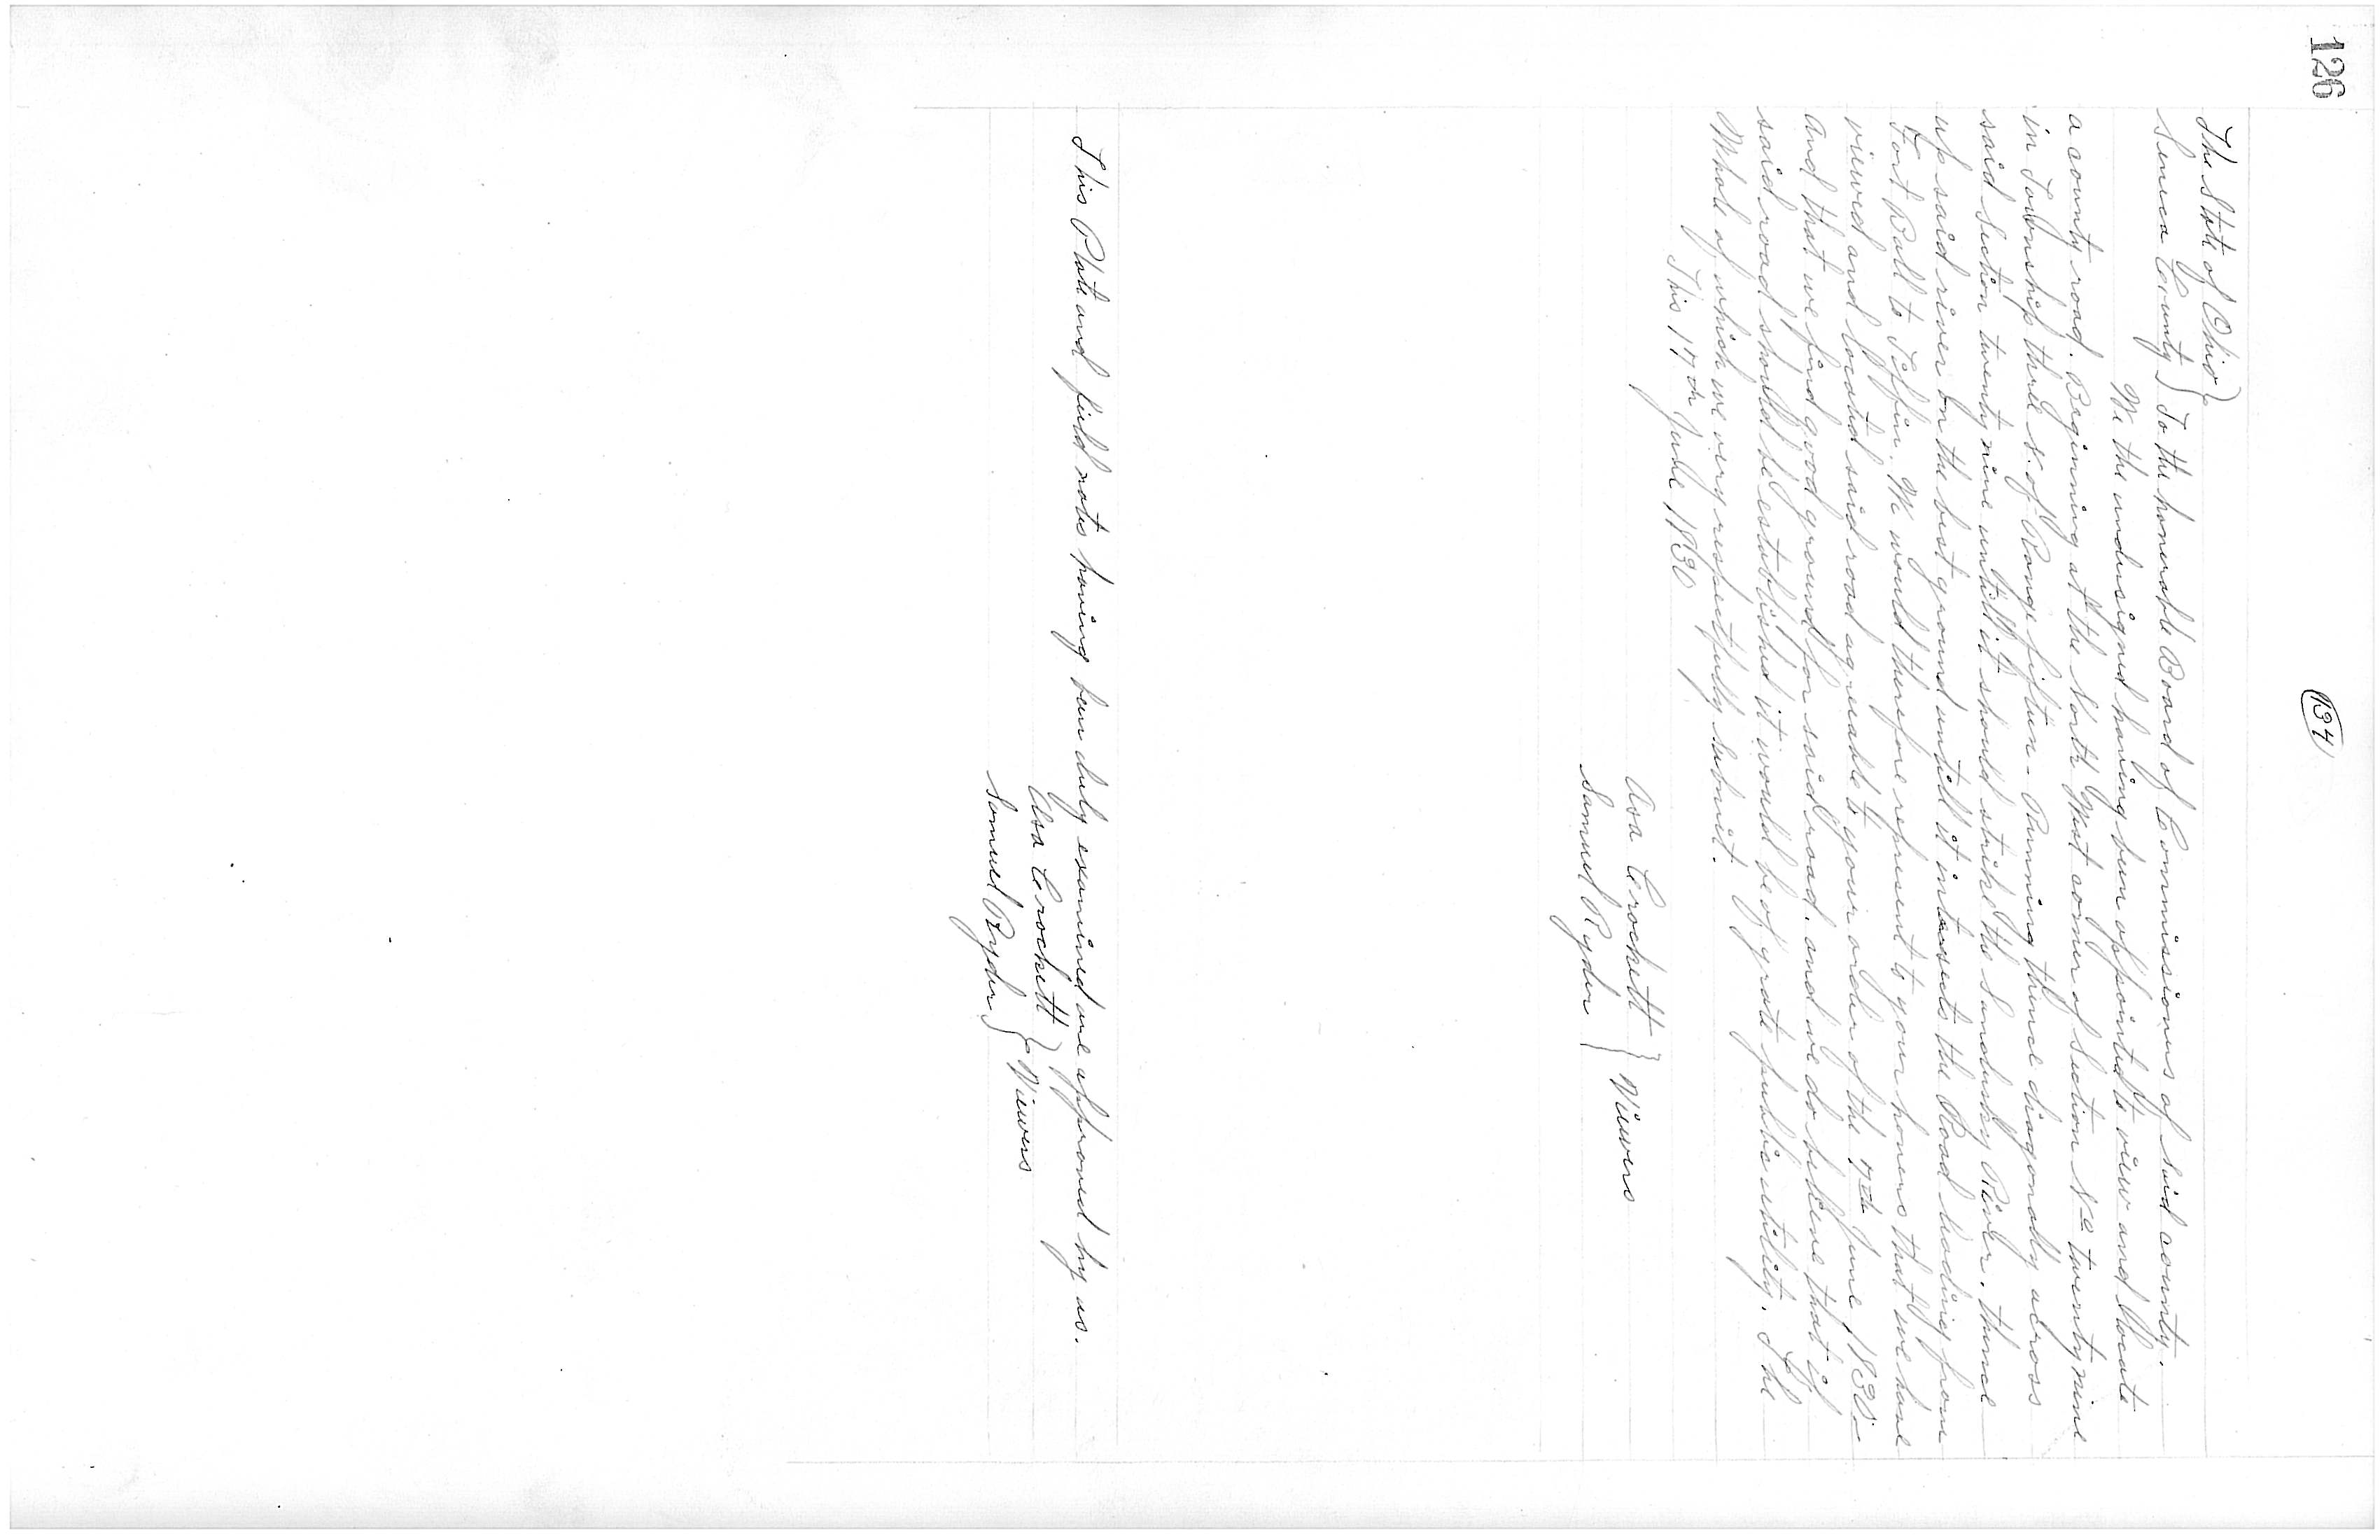 126
134
The State of Ohio }
Seneca County } To the honorable Board of Commissioners of said county.
We the undersigned having been appointed to view and locate
a county road. Beginning at the North West corner of Section No twenty nine
in Township three N. of Range fifteen - Running thence diagonally across
said Section twenty nine untill it should strike the Sandusky River. thence
up said river on the best ground untill it intersects the Road leading from
Fort Ball to Tiffin. We would therefore represent to your honors that we have
viewed and located said road agreeable to your order of the 7th June 1830.
And that we find good ground for said road. and we do believe that if
said road should be established it would be of grate public utility. The
Whole of which we very respectfully submit.
This 17th June 1830
Asa Crockett }
Samuel Ryder } Viewers
This Plate and field notes having been duly examined are approved by us.
Asa Crockett }
Samuel Ryder } Viewers